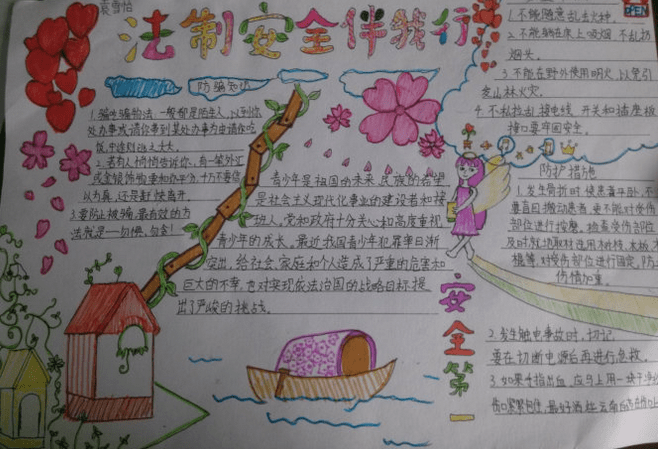 袁雪怡
法制安全伴我行
防骗知识
1.骗吃骗物法:一般都是陌生人,以到你
处办事或请你帮到某处办事为由请你吃
饭,也达到
2.若有人悄悄告诉你,有一笔外汇
或金银饰物要和你平分,十万不要信
以为真,还是赶快离开。
3.要防止被骗,最有效的方
法就是一句惯,勿贪!
青少年是祖国的未来,民族的希望
是社会主义现代化事业的建设者和接
班人,党和政府十分关心和高度重视
青少年的成长。最近我国青少年犯罪率日渐
突出,给社会、家庭和个人造成了严重的危害和
巨大的不幸,也对实现依法治国的战略目标提
出了严峻的挑战。
安全第一
OPEN
1.不能随意乱丢火种。
2.不能躺在床上吸烟,不乱扔
烟头。
3.不能在野外使用明火,以免引
发山林火灾。
4.不私拉乱接电线,开关和插座板
接口要牢固安全。
防护措施
1.发生骨折时,使患者平卧,不
要盲目搬动患者,更不能对受伤
部位进行按摩。检查受伤部位
及时就地取材,选用树枝、木板、木
棍等,对受伤部位进行固定,防止
伤情加重。
2.发生触电事故时,切记
要在切断电源后再进行急救。
3.如果手指出血,应马上用一块干净纱
伤口紧紧包住,最好洒些云南白药在伤口上